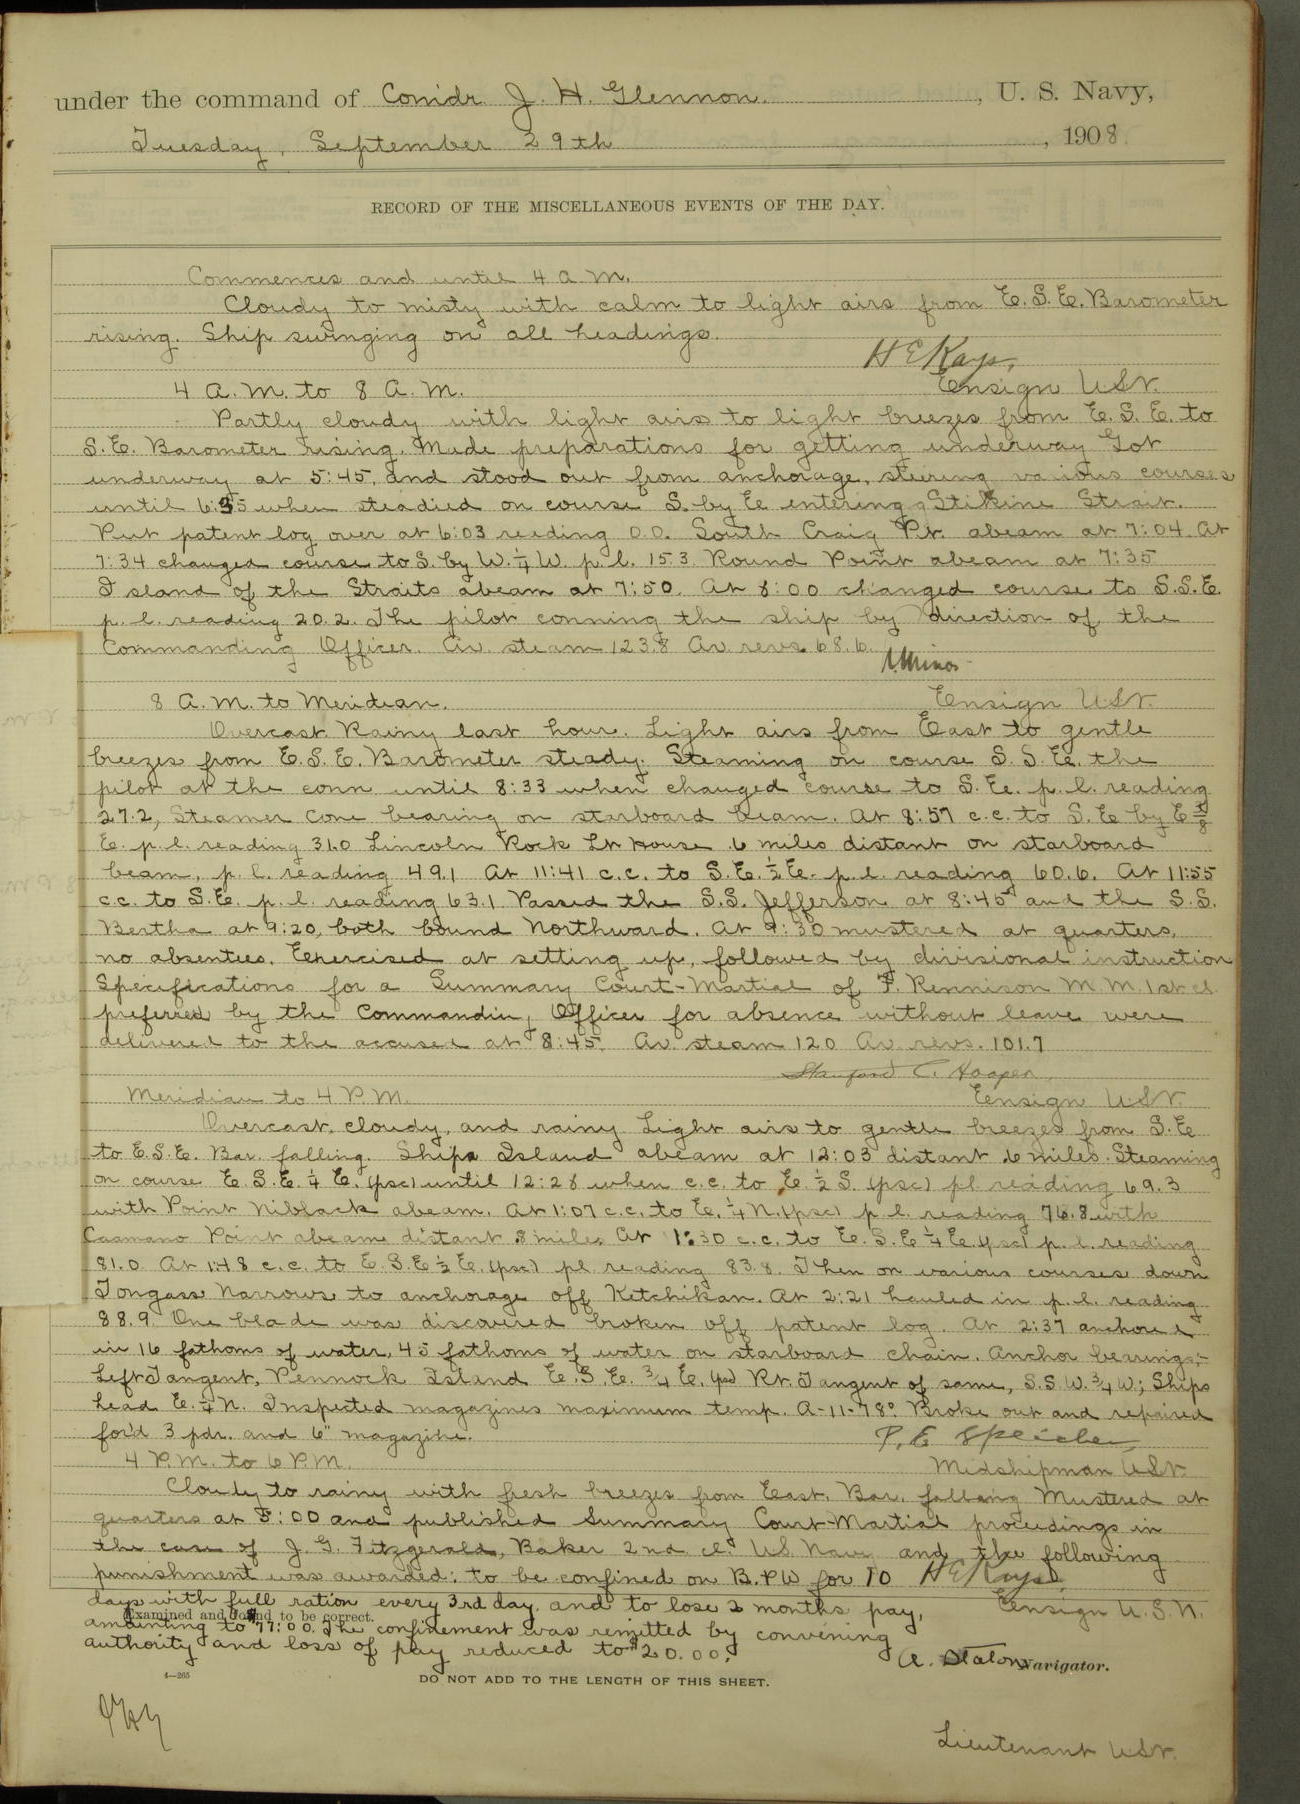 under the command of Comdr. J. H. Glennon. , U. S. Navy,
Tuesday, September 29th , 1908.
RECORD OF THE MISCELLANEOUS EVENTS OF THE DAY.
Commences and until 4 a.m.
Cloudy to misty with calm to light airs from E.S.E. Barometer
rising. Ship swinging on all headings.
H E Kays,
4 A.M. to 8 A.M. Ensign USN.
Partly cloudy with light airs to light breezes from E.S.E. to
S.E. Barometer rising. Made preparations for getting underway Got
underway at 5:45, and stood out from anchorage, steering various courses
until 6:35 when steadied on course S. by E. entering Stikine Strait.
Put patent log over at 6:03 reading 0.0. South Craig Pt. abeam at 7:04. At
7:34 changed course to S. by W. ¼ W. p.l. 15.3. Round Point abeam at 7:35
Island of the Straits abeam at 7:50. At 8:00 changed course to S.S.E.
p.l. reading 20.2. The pilot conning the ship by direction of the
Commanding Officer. Av. steam 123.8 Av. revs. 68.6.
8 A.M. to Meridian. Ensign USN.
Overcast. Rainy last hour. Light airs from East to gentle
breezes from E.S.E. Barometer steady. Steaming on course S.S.E. the
pilot at the conn until 8:33 when changed course to S.E. p.l. reading
27.2, Steamer Cone bearing on starboard beam. At 8:57 c.c. to S.E by E
E. p.l. reading 31.0 Lincoln Rock Lt House .6 miles distant on starboard
beam, p.l. reading 49.1 At 11:41 c.c. to S.E. ½ E. p.l. reading 60.6. At 11:55
c.c. to S.E. p.l. reading 63.1 Passed the S.S. Jefferson at 8:45 and the S.S.
Bertha at 9:20, both bound Northward. At 9:30 mustered at quarters,
no absentees. Exercised at setting up, followed by divisional instruction
Specifications for a Summary Court-Martial of F. Rennison M.M. 1st cl.
preferred by the Commanding Officer for absence without leave were
delivered to the accused at 8:45. Av. steam 120 Av. revs. 101.7
Stanford C. Hooper,
Meridian to 4 P.M. Ensign USN.
Overcast, cloudy, and rainy Light airs to gentle breezes from S.E
to E.S.E. Bar. falling. Ships Island abeam at 12:03 distant .6 miles. Steaming
on course E.S.E. ¼ E. (psc) until 12:28 when c.c. to E ½ S. (psc) pl reading 69.3
with Point Niblack abeam. At 1:07 c.c. to E. ¼ N. (psc) p.l. reading 76.8 with
Caamano Point abeam distant .8 miles At 1:30 c.c. to E.S.E ¼ E. (psc) p.l. reading
81.0 At 1:48 c.c. to E.S.E ½ E. (psc) pl reading 83.8. Then on various courses down
Tongass Narrows to anchorage off Ketchikan. At 2:21 hauled in p.l. reading
88.9. One blade was discovered broken off patent log. At 2:37 anchored
in 16 fathoms of water, 45 fathoms of water on starboard chain. Anchor bearings;-
Left Tangent, Pennock Island E.S.E. ¾ E. (psc) Rt. Tangent of same, S.S.W. ¾ W; Ships
head E. ¼ N. Inspected magazines maximum temp. A-11-78° Broke out and repaired
for'd 3 pdr. and 6" magazine. P. E Speicher,
4 P.M. to 6 P.M. Midshipman USN.
Cloudy to rainy with fresh breezes from East. Bar. falling Mustered at
quarters at 5:00 and published Summary Court-Martial proceedings in
the case of J. G. Fitzgerald, Baker 2nd cl. US Navy and the following
punishment was awarded: to be confined on B.&W for 10 H E Kays,
days with full ration every 3rd day, and to lose 2 months pay, Ensign U.S.N.
Examined and found to be correct.
amounting to $77.00. The confinement was remitted by convening
authority and loss of pay reduced to $20.00.
A. Staton Navigator.
4—265
DO NOT ADD TO THE LENGTH OF THIS SHEET.
Lieutenant USN.